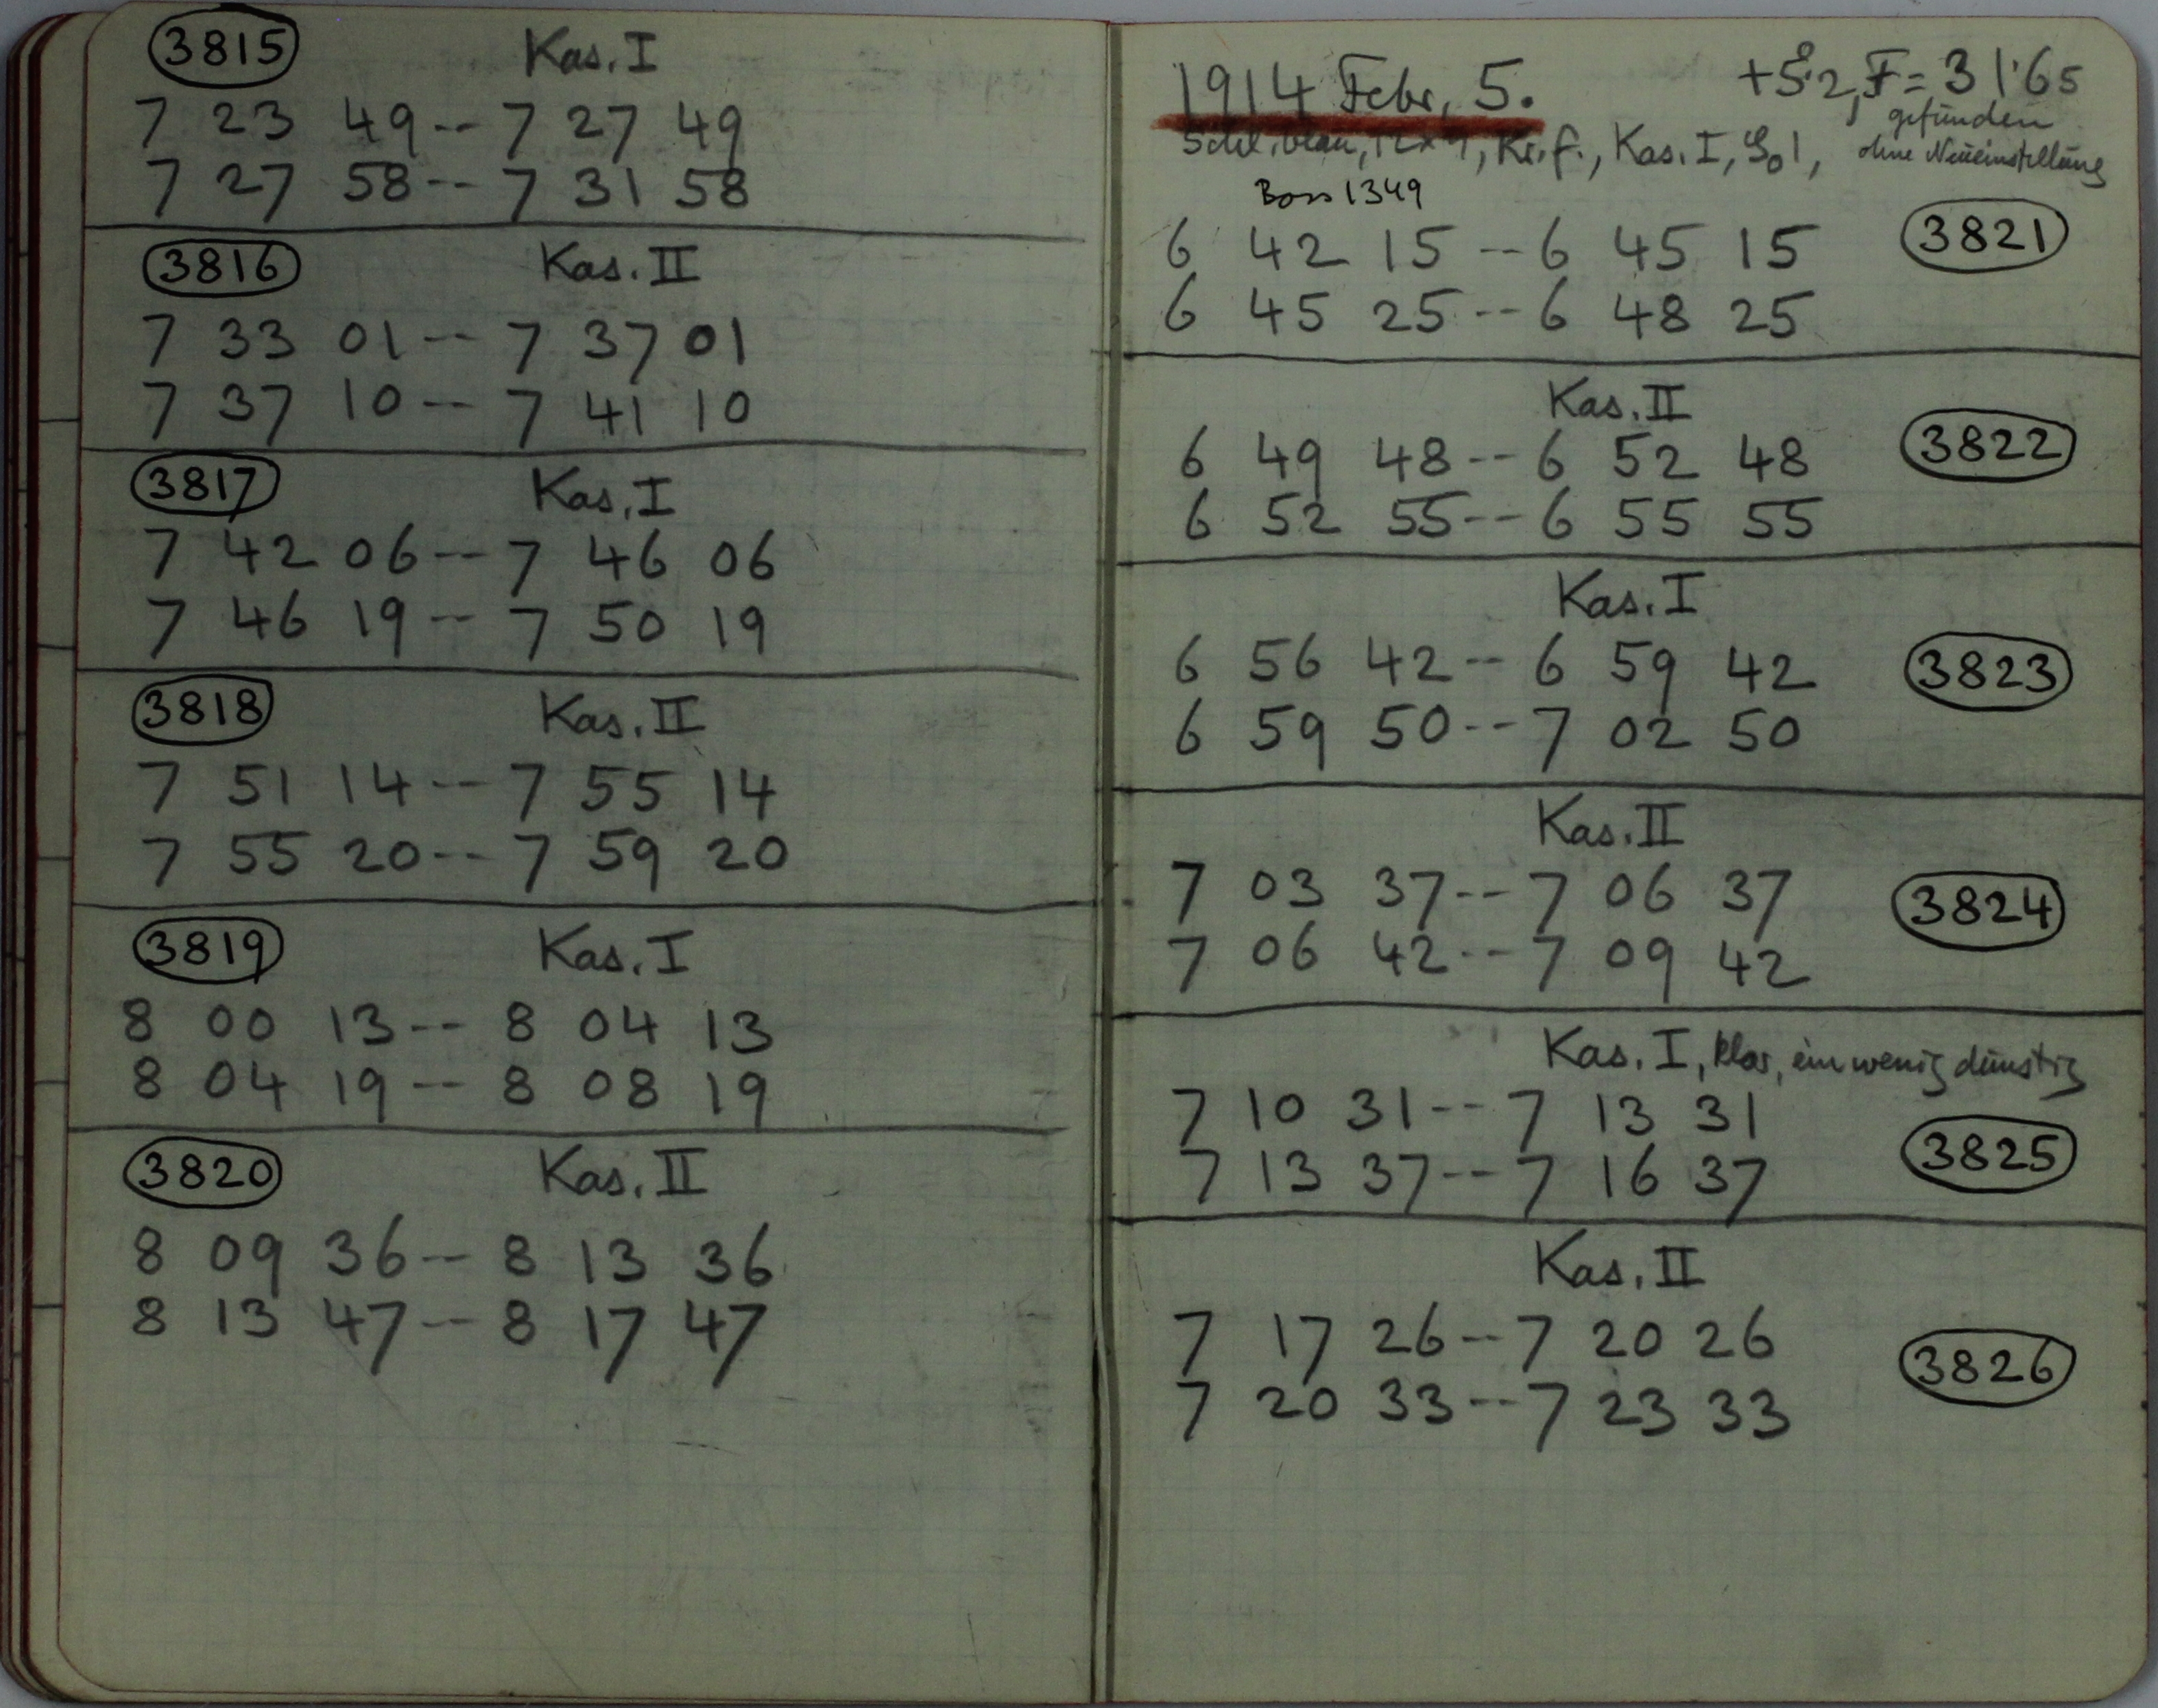 3815 Kas. I
7 23 49 -- 7 27 49
7 27 58 -- 7 31 58
3816 Kas. II
7 33 01 -- 7 37 01
7 37 10 -- 7 41 10
3817 Kas. I
7 42 06 -- 7 46 06
7 46 19 -- 7 50 19
3818 Kas. II
7 51 14 -- 7 55 14
7 55 20 -- 7 59 20
3819 Kas. I
8 00 13 -- 8 04 13
8 04 19 -- 8 08 19
3820 Kas. II
8 09 36 -- 8 13 36
8 13 47 -- 8 17 47
1914 Febr, 5. +5°.2, F = 31.65
gefunden
Schl. blau, 12x9, Kr. f., Kas. I, ohne Neueinstellung
Boss 1349
6 42 15 -- 6 45 15 3821
6 45 25 -- 6 48 25
Kas. II
6 49 48 -- 6 52 48 3822
6 52 55 -- 6 55 55
Kas. I
6 56 42 -- 6 59 42 3823
6 59 50 -- 7 02 50
Kas. II
7 03 37 -- 7 06 37 3824
7 06 42 -- 7 09 42
Kas. I, klar, ein wenig dunstig
7 10 31 -- 7 13 31
7 13 37 -- 7 16 37 3825
Kas. II
7 17 26 -- 7 20 26 3826
7 20 33 -- 7 23 33